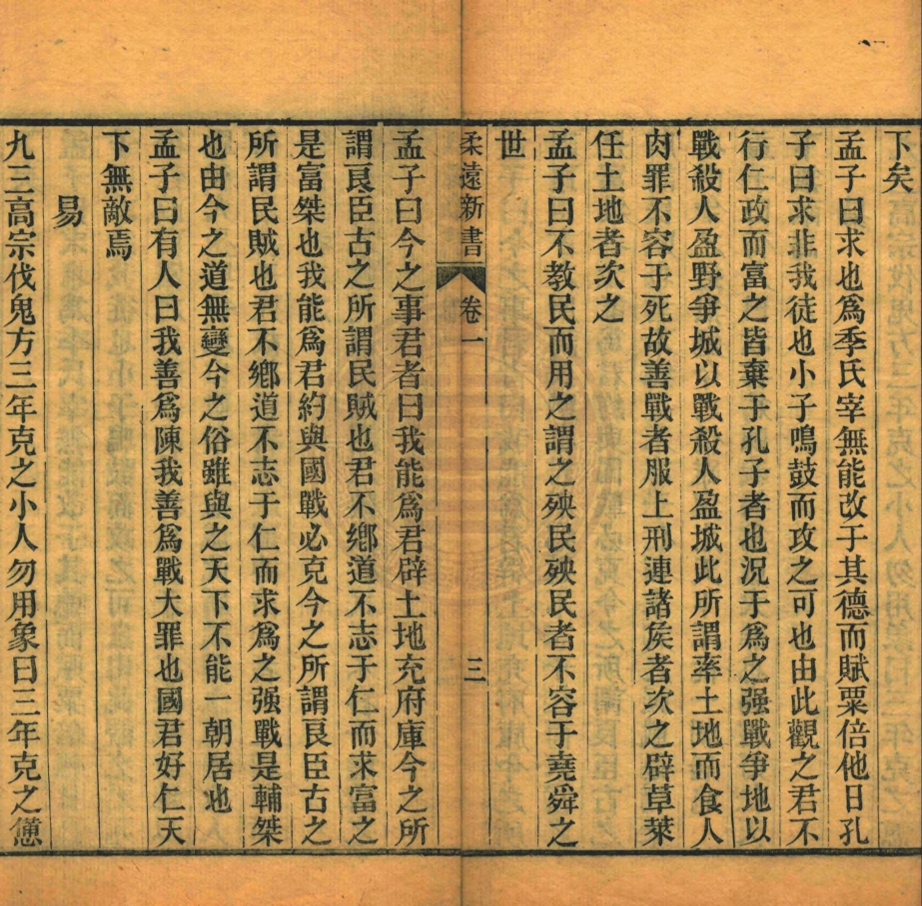 下矣
孟子曰求也爲季氏宰無能改于其德而賦粟倍他日孔
子曰求非我徒也小子鳴鼓而攻之可也由此觀之君不
行仁政而富之皆棄于孔子者也況于爲之强戰爭地以
戰殺人盈野爭城以戰殺人盈城此所謂率土地而食人
肉罪不容于死故善戰者服上刑連諸矦者次之辟草萊
任土地者次之
孟子曰不教民而用之謂之殃民殃民者不容于堯舜之
世
柔遠新書 卷一 三
孟子曰今之事君者曰我能爲君辟土地充府庫今之所
謂良臣古之所謂民賊也君不鄉道不志于仁而求富之
是富桀也我能爲君約與國戰必克今之所謂良臣古之
所謂民賊也君不鄉道不志于仁而求爲之强戰是輔桀
也由今之道無變今之俗雖與之天下不能一朝居也
孟子曰有人曰我善爲陳我善爲戰大罪也國君好仁天
下無敵焉
易
九三高宗伐鬼方三年克之小人勿用象曰三年克之憊